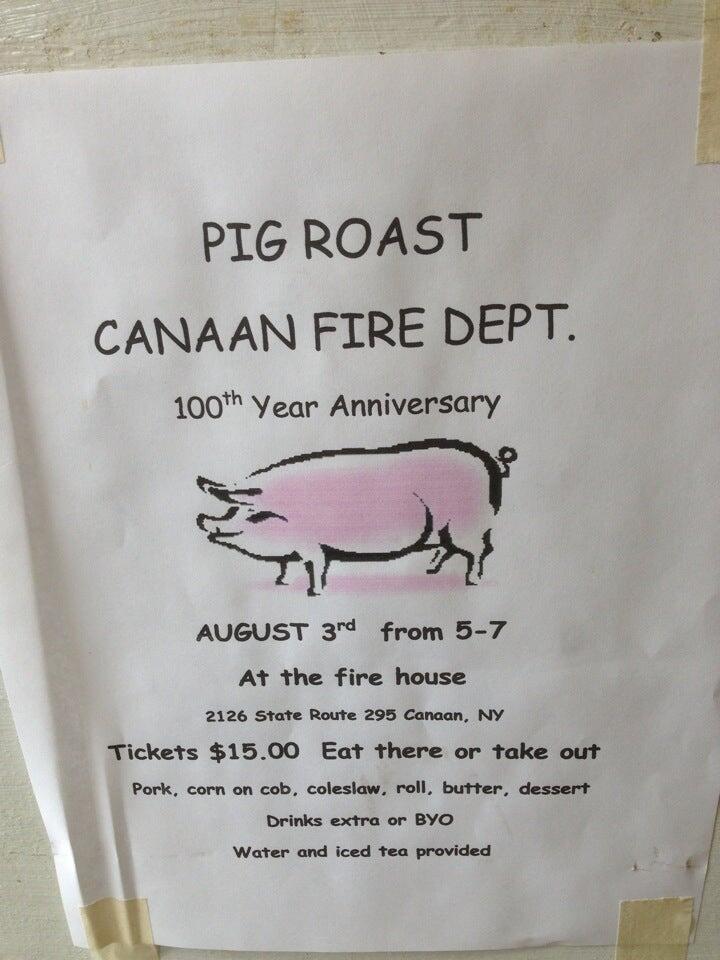 PIG ROAST
CANAAN FIRE DEPT.
100th Year Anniversary
AUGUST 3rd from 5-7
At the fire house
2126 State Route 295 Canaan, NY
Tickets $15.00 Eat there or take out
Pork, corn on cob, coleslaw, roll, butter, dessert
Drinks extra or BYO
Water and iced tea provided